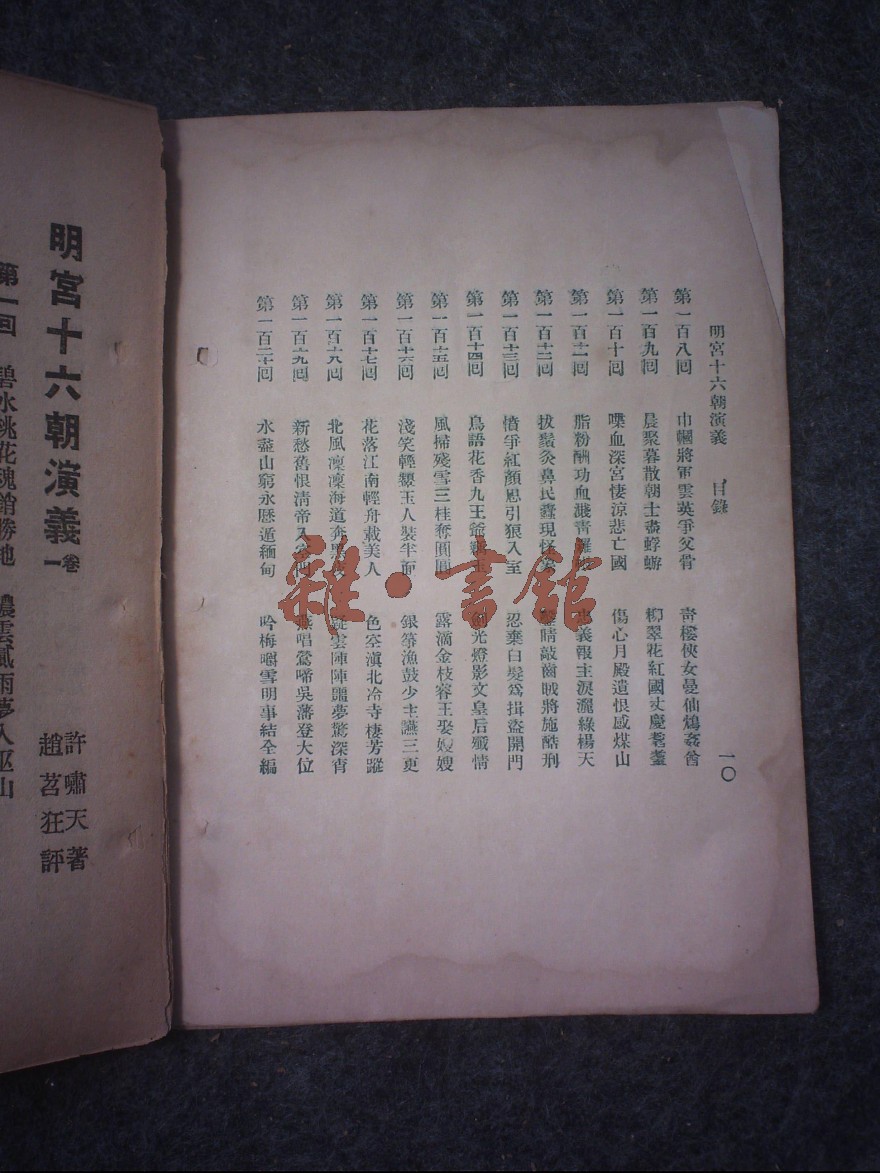 明宮十六朝演義 目錄
一〇
第一百八回 巾幗將軍雲英爭父骨 奇樓俠女曼仙鴆
第一百九回 晨聚暮散朝士盡蜉蝣 柳翠花紅國丈慶耄耋
第一百十回 喋血深宮悽涼悲亡國 傷心月殿遺恨感煤山
第一百十一回 脂粉酬功血濺青 義報主淚灑綠楊天
第一百十二回 拔鬚灸鼻民 現 睛敲齒賊將施酷刑
第一百十三回 憤爭紅顏恩引狼入室 忍棄白髮爲揖盜開門
第一百十四回 鳥語花香九王爺 光燈影文皇后殲情
第一百十五回 風掃殘雪三桂奪圓圓 露滴金枝睿王娶嫂嫂
第一百十六回 淺笑輕顰玉人裝半面 銀箏漁鼓少主讌三更
第一百十七回 花落江南輕舟載美人 色空滇北冷寺棲芳蹤
第一百十八回 北風凜凜海道奔 疑雲陣陣鹽夢驚深宵
第一百十九回 新愁舊恨清帝入 燕唱鶯啼吳藩登大位
第一百二十回 水盡山窮永曆遁緬甸 吟梅嚼雪明事結全編
雜·書館
明宮十六朝演義 卷一
許嘯天著
趙苕狂評
第一回 碧水桃花魂銷勝地 濃雲風雨夢入巫山